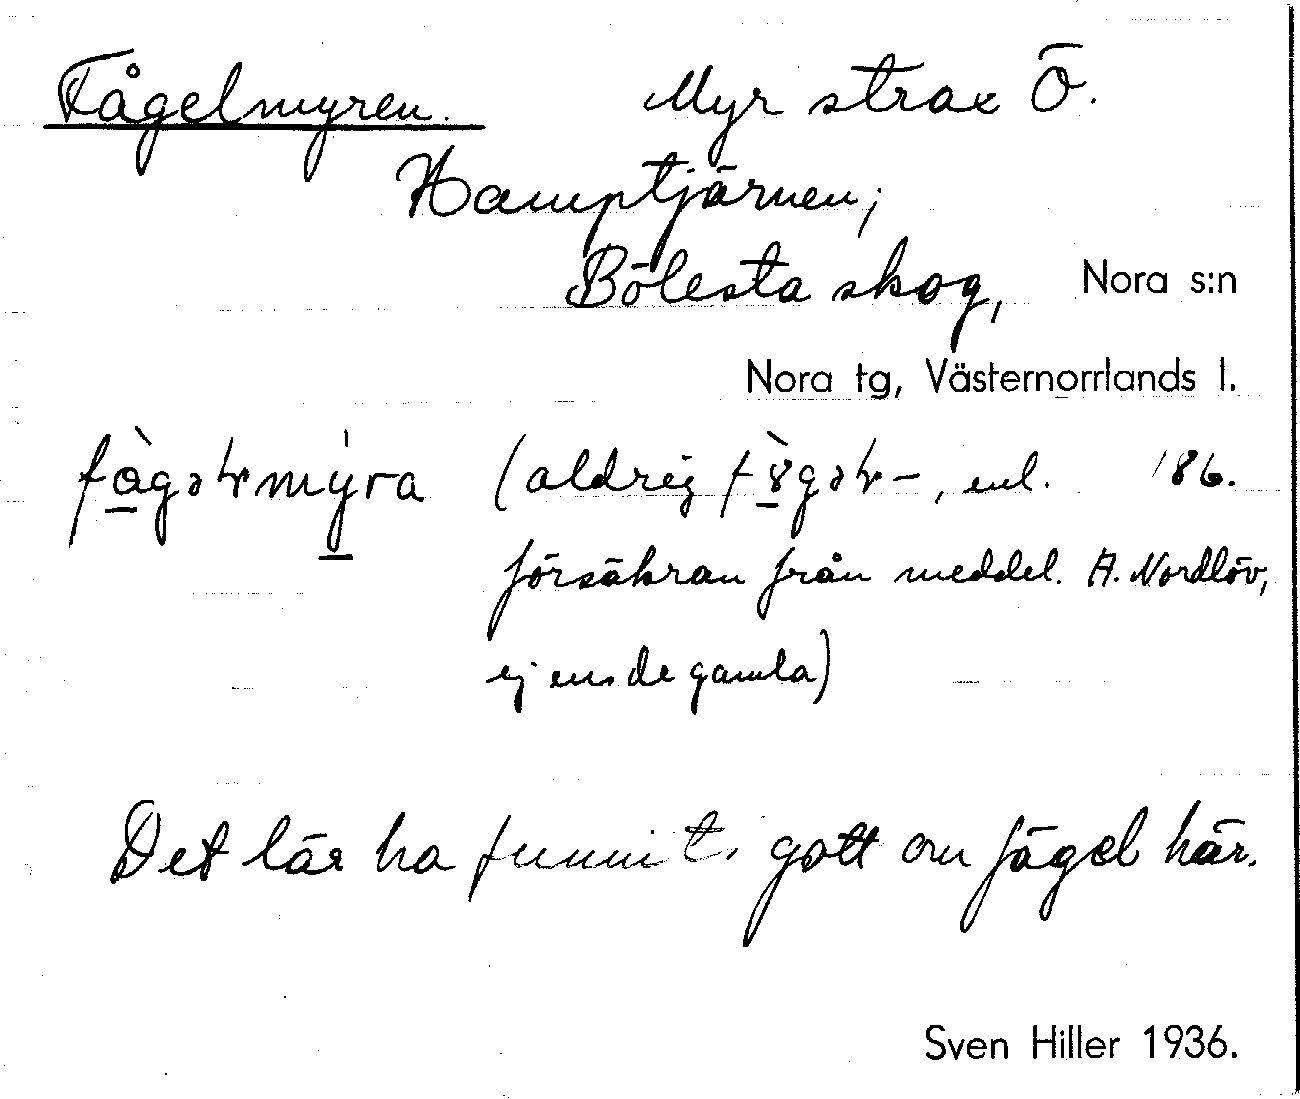 Fågelmyren. Myr strax Ö.
Hamptjärnen;
Bölesta skog, Nora s:n
Nora tg, Västernorrlands l.
(aldrig enl. 186.
försäkran från meddel. A. Nordlöv,
ej ens de gamla)
Det lär ha funnits gott om fågel här.
Sven Hiller 1936.